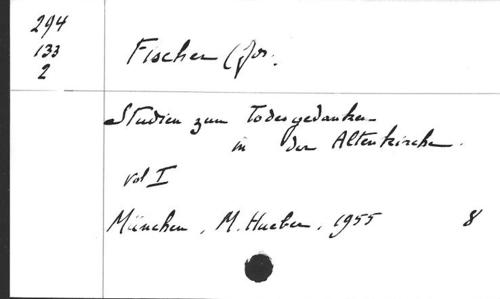 294
133
2
Fischer (Jos.
Studien zum Todesgedanken
in der Altenkirche.
vol I
München, M. Hueber, 1955 8